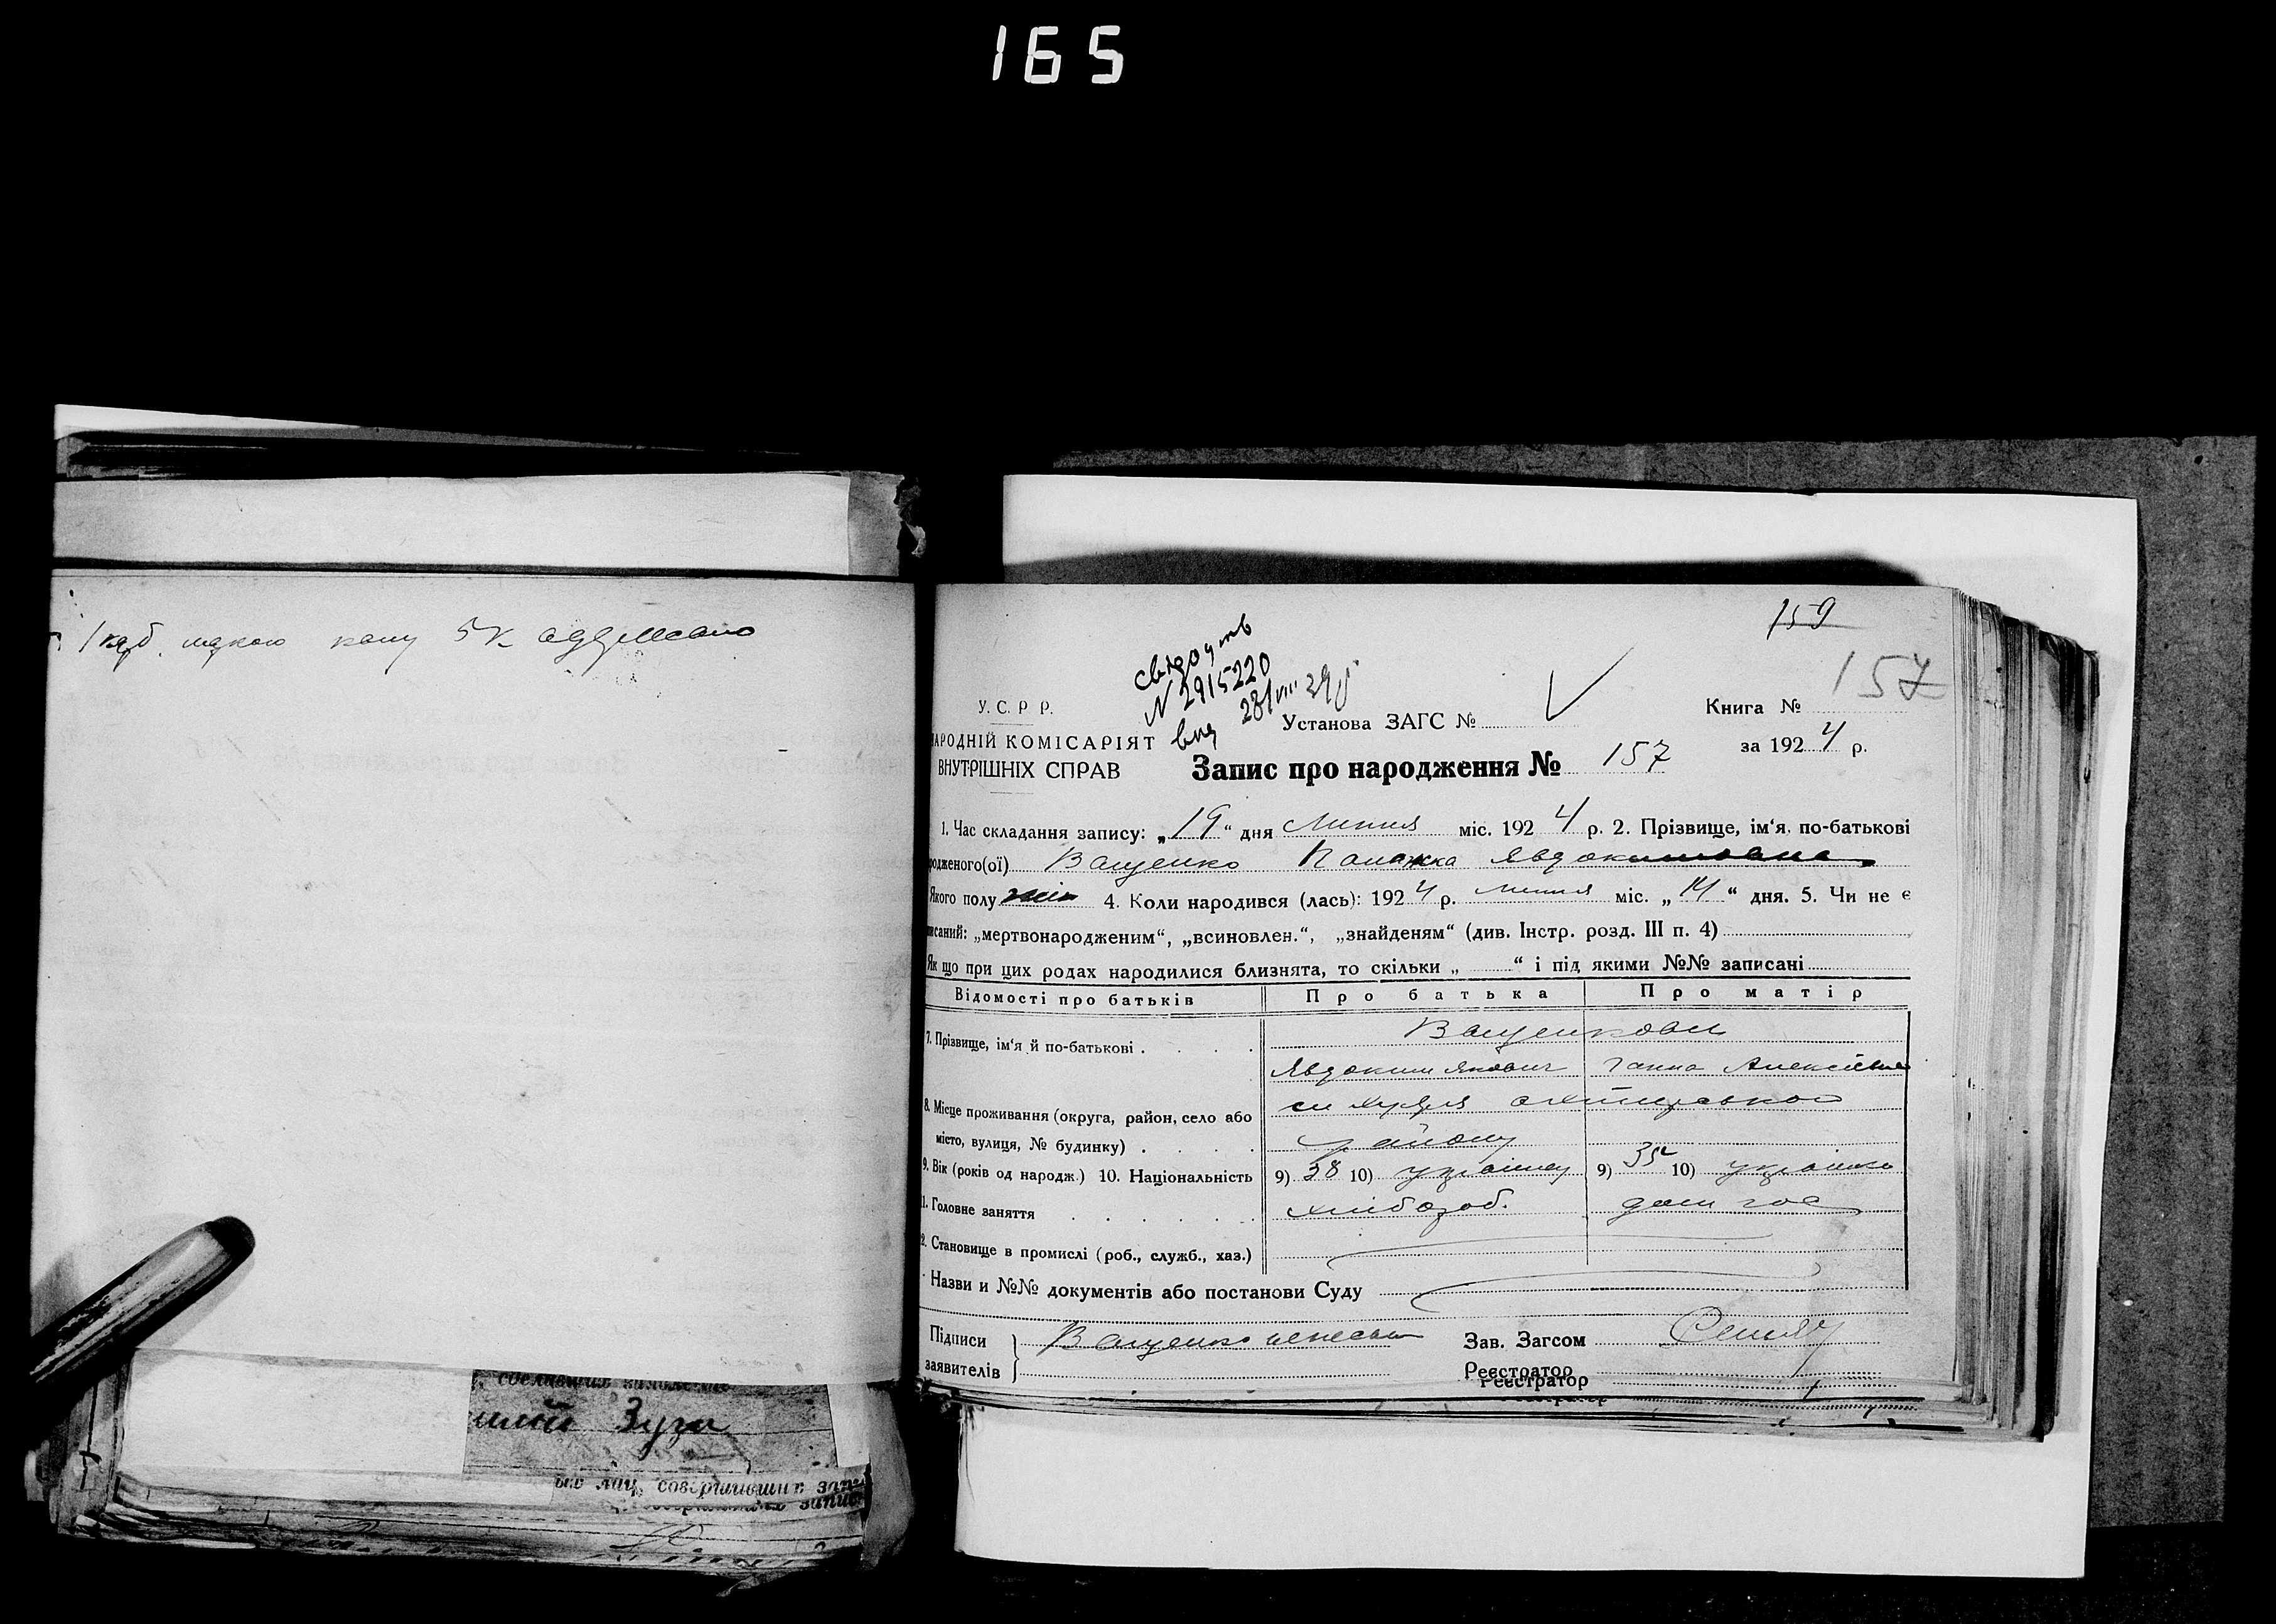 165
159
157
свідоцтв
N 2915220
вид 28/VIII 39 р
У. С. Р Р.
НАРОДНІЙ КОМІСАРІЯТ
ВНУТРІШНІХ СПРАВ
Установа ЗАГС №
Книга №
за 1924 р.
Запис про народження № 157
1. Час складання запису: „19“ дня Липня міс. 1924 р. 2. Прізвище, ім‘я, по-батькові
родженого(ої) Ващенко Палажка Явдокимовна
Якого полу жін 4. Коли народився (лась): 1924 р. липня міс. „14“ дня. 5. Чи не є
писаний: „мертвонародженим“, „всиновлен.“, „знайденям“ (див. Інстр. розд. III п. 4)
Як що при цих родах народилися близнята, то скільки „ “ і під якими №№ записані
Відомості про батьків Про батька Про матір
7. Прізвище, ім‘я й по-батькові Ващенкови
Явдоким Якович Ганна Алексіевна
8. Місце проживання (округа, район, село або
місто, вулиця, № будинку) району
9. Вік (років од народж.) 10. Національність 9) 38 10) українец 9) 35 10) українка
11. Головне заняття хлібороб. дом гос
12. Становище в промислі (роб., служб., хаз.)
Назви и №№ документів або постанови Суду
Підписи заявителів Ващенко неписьм
Зав. Загсом
Реєстратор
Реєстратор
Зуги
совершивших запи